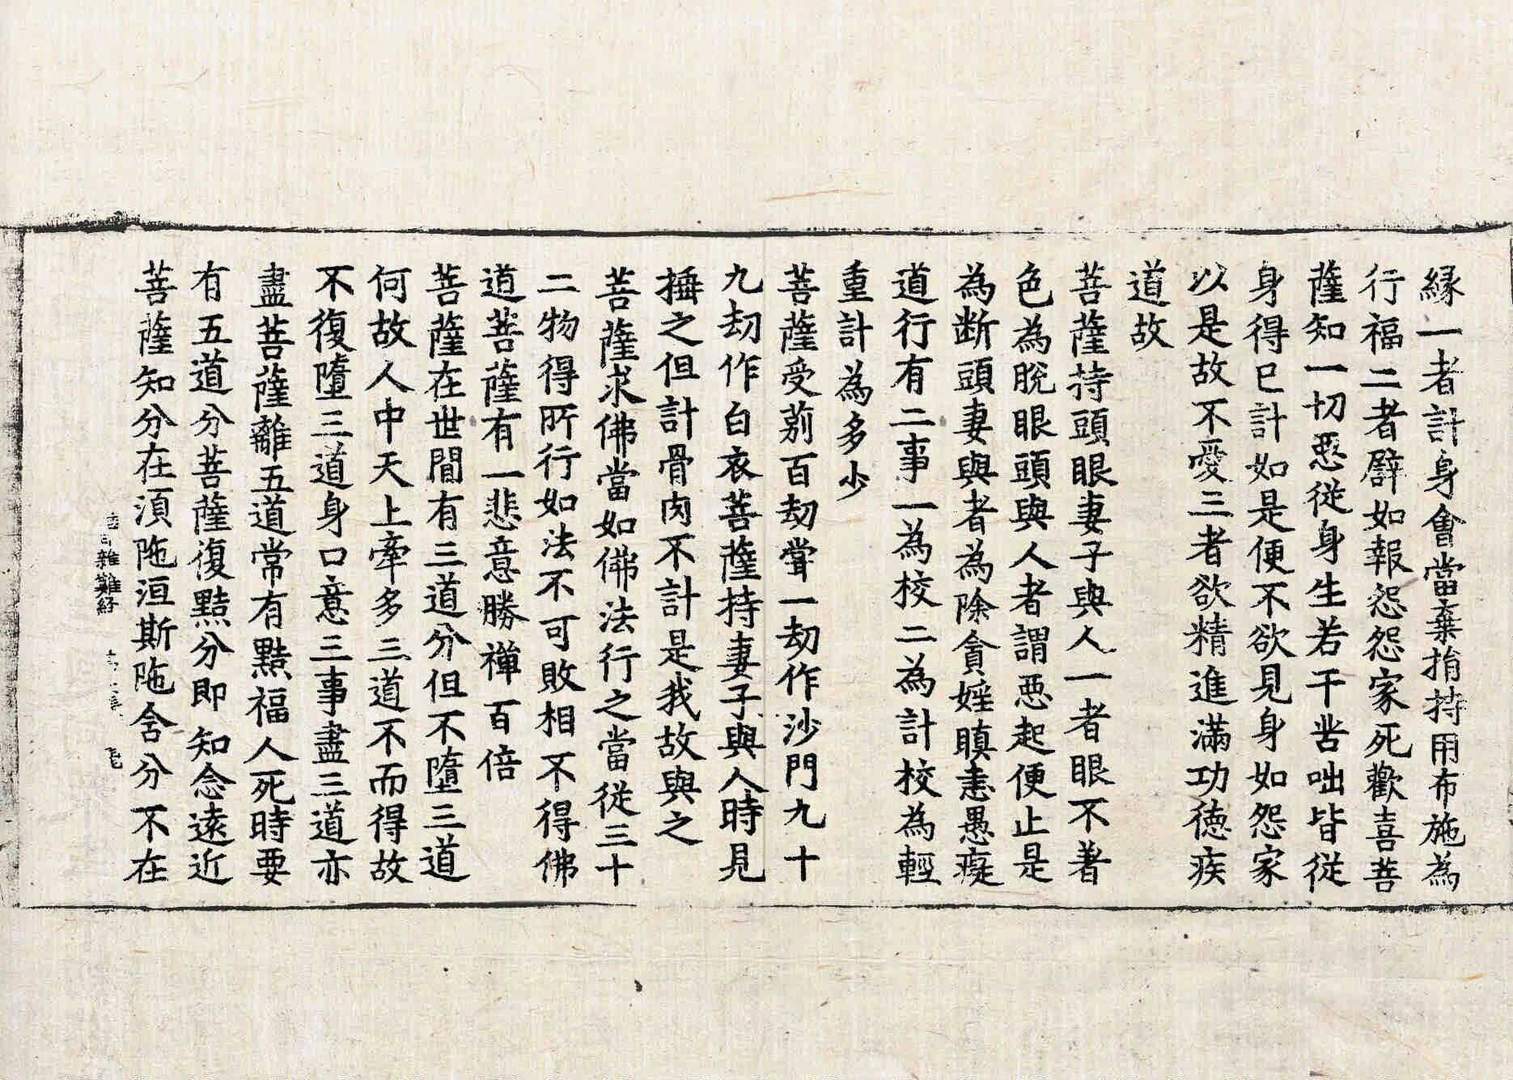 縁一者計身會當棄捐持用布施為
行福二者譬如報怨怨家死歡喜菩
薩知一切惡從身生若干苦咄皆從
身得已計如是便不欲見身如怨家
以是故不愛三者欲精進滿功德疾
道故
菩薩持頭眼妻子與人一者眼不著
色為脫眼頭與人者謂惡起便止是
為斷頭妻與者為除貪婬瞋恚愚癡
道行有二事一為校二為計校為輕
重計為多少
菩薩受前百劫甞一劫作沙門九十
九劫作白衣菩薩持妻子與人時見
捶之但計骨肉不計是我故與之
菩薩求佛當如佛法行之當從三十
二物得所行如法不可敗相不得佛
道菩薩有一悲意勝禪百倍
菩薩在世間有三道分但不墮三道
何故人中天上牽多三道不而得故
不復墮三道身口意三事盡三道亦
盡菩薩離五道常有黠福人死時要
有五道分菩薩復黠分即知念遠近
菩薩知分在湏陁洹斯陁含分不在
雜難經